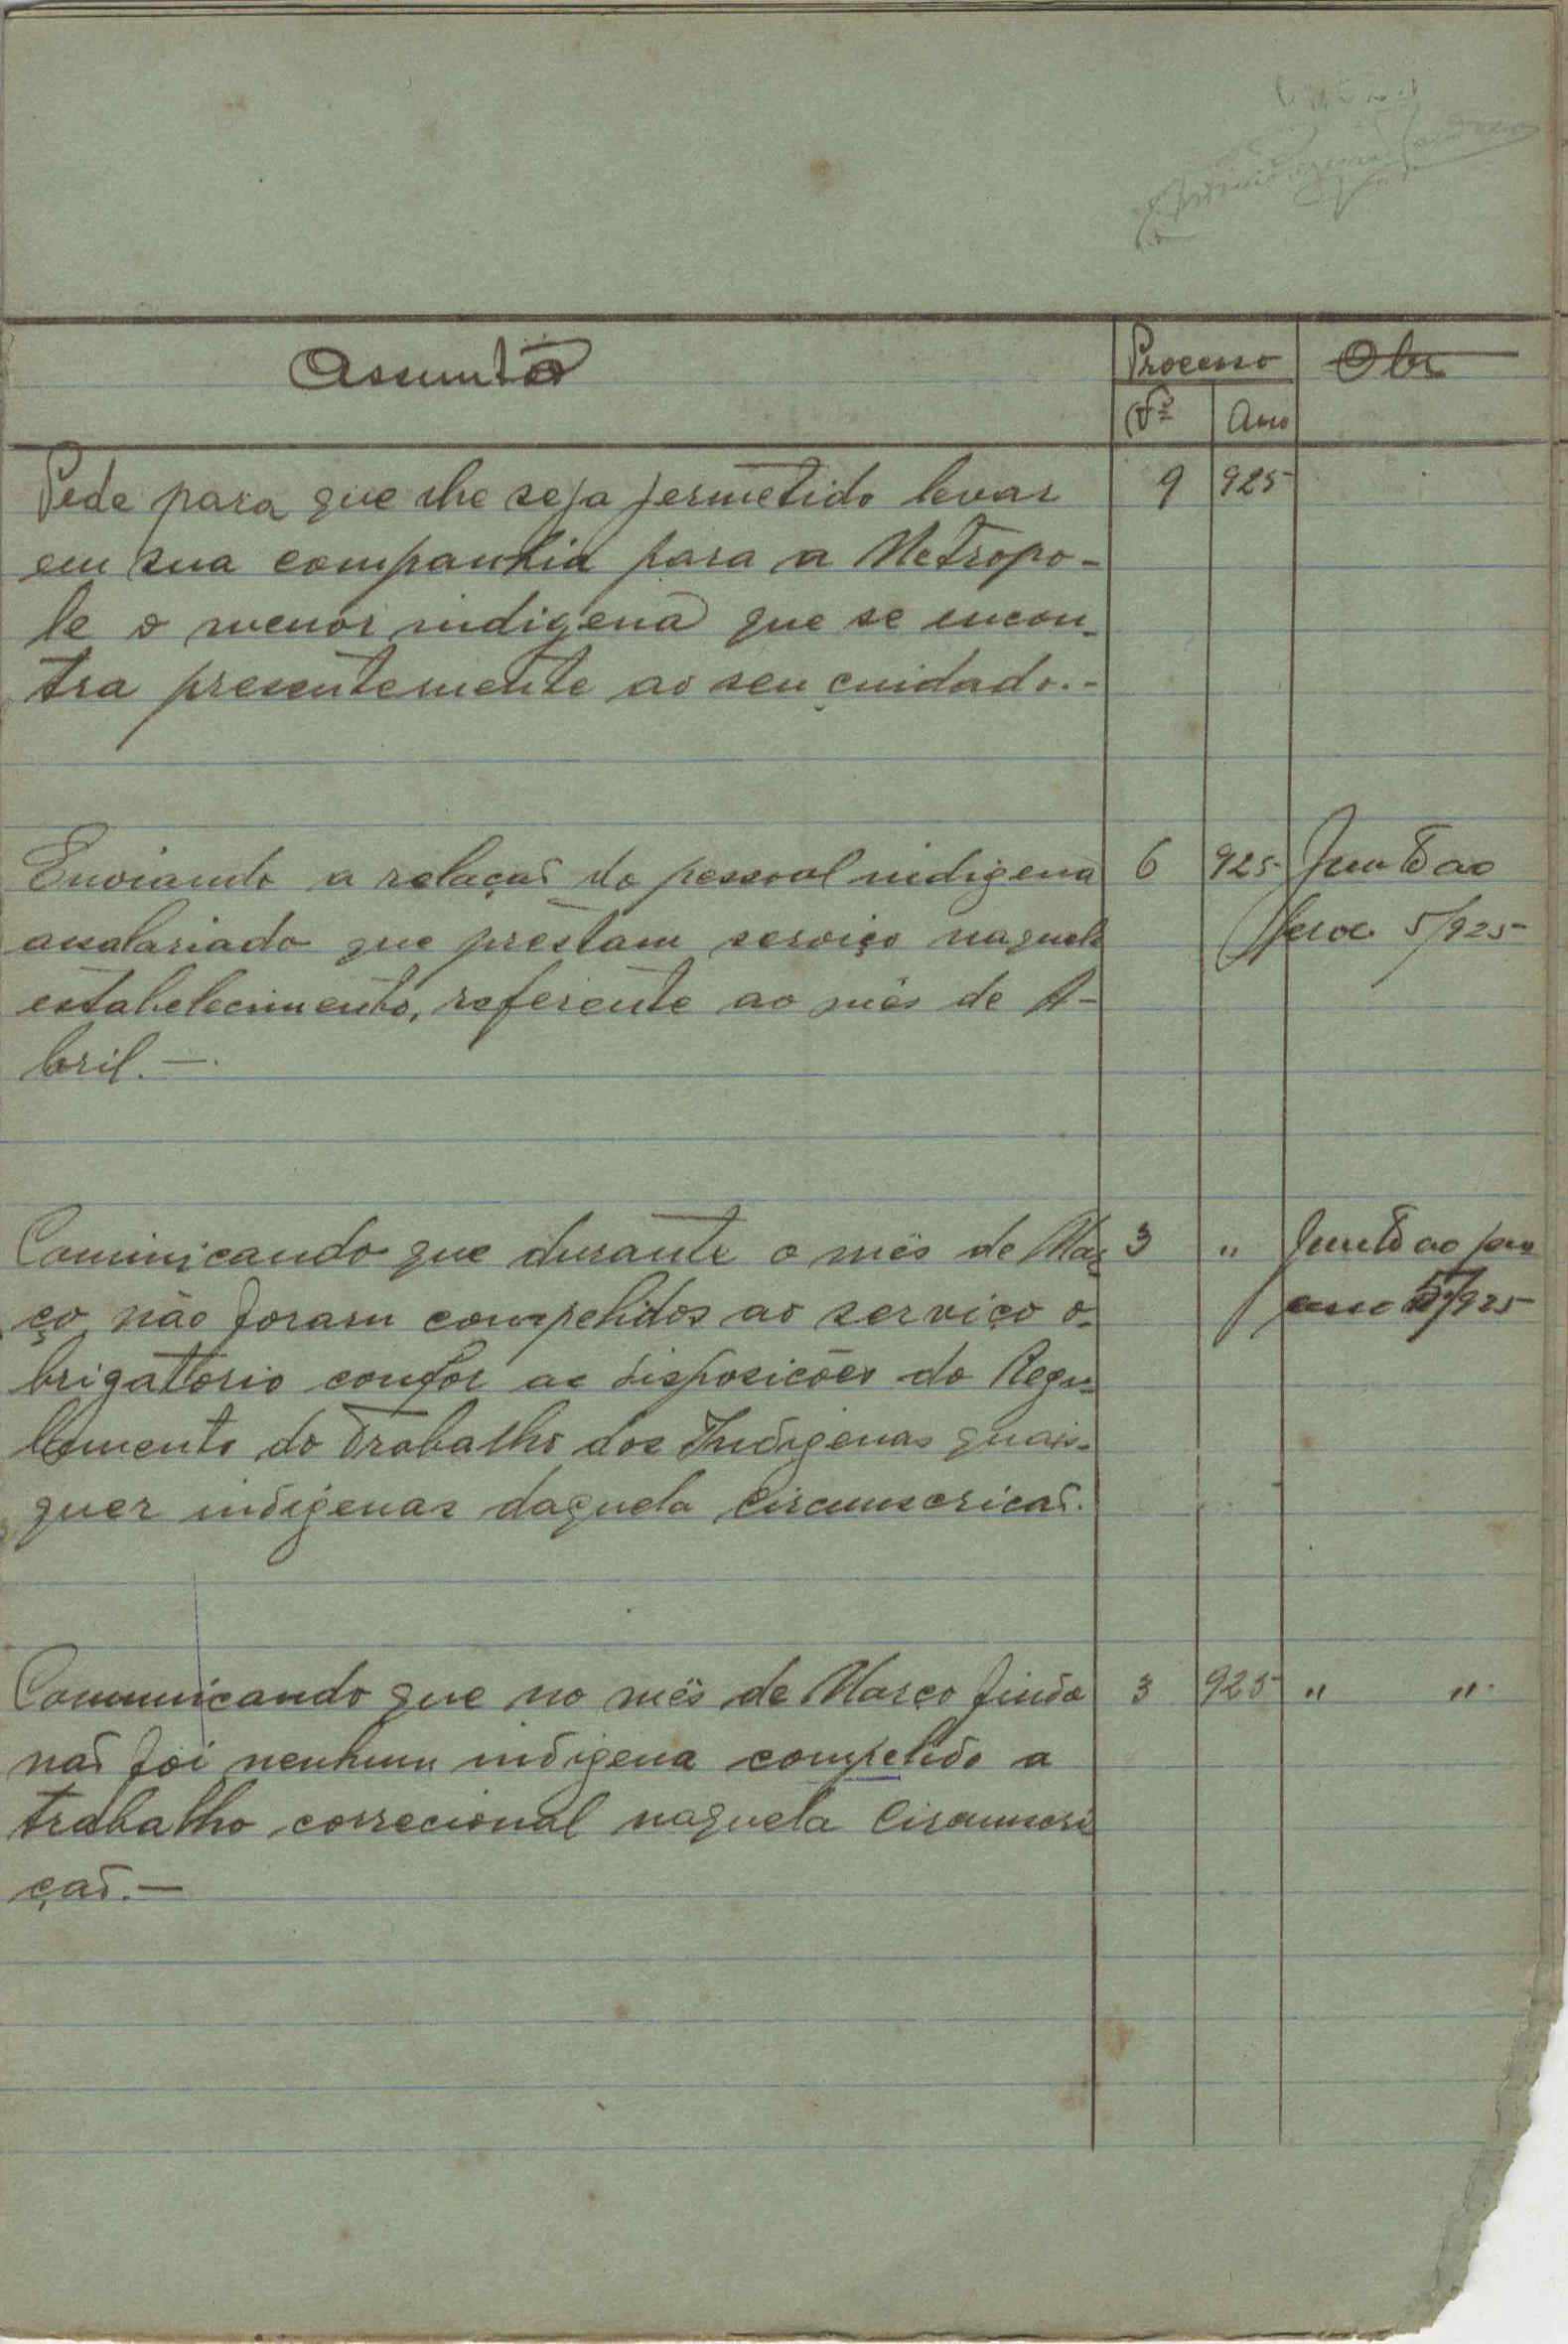 Assunto Processo Obs
Nº Ano
Pede para que lhe seja permetido levar 9 925
em sua companhia para a Metropo-
le o menor indigena que se encon-
tra presentemente ao seu cuidado.-
Enviando a relaçaõ do pessoal indigena 6 925 Junto ao
assalariado que prestam serviço naquele proc. 5/925
estabelecimento, referente ao mês de A-
bril.—.
Cominicando que durante o mês de Mar- 3 " Junto ao pro
ço não foram compelidos ao serviço o- cesso 5/925
brigatorio confor as disposicões do Regu-
lamento do Trabalho dos Indigenas quais-
quer indigenas daquela Circunscricaõ.
Communicando que no mês de Março findo 3 925 " "
naõ foi nenhum indigena compelido a
trabalho correcional naquela Circunscri
çaõ.—